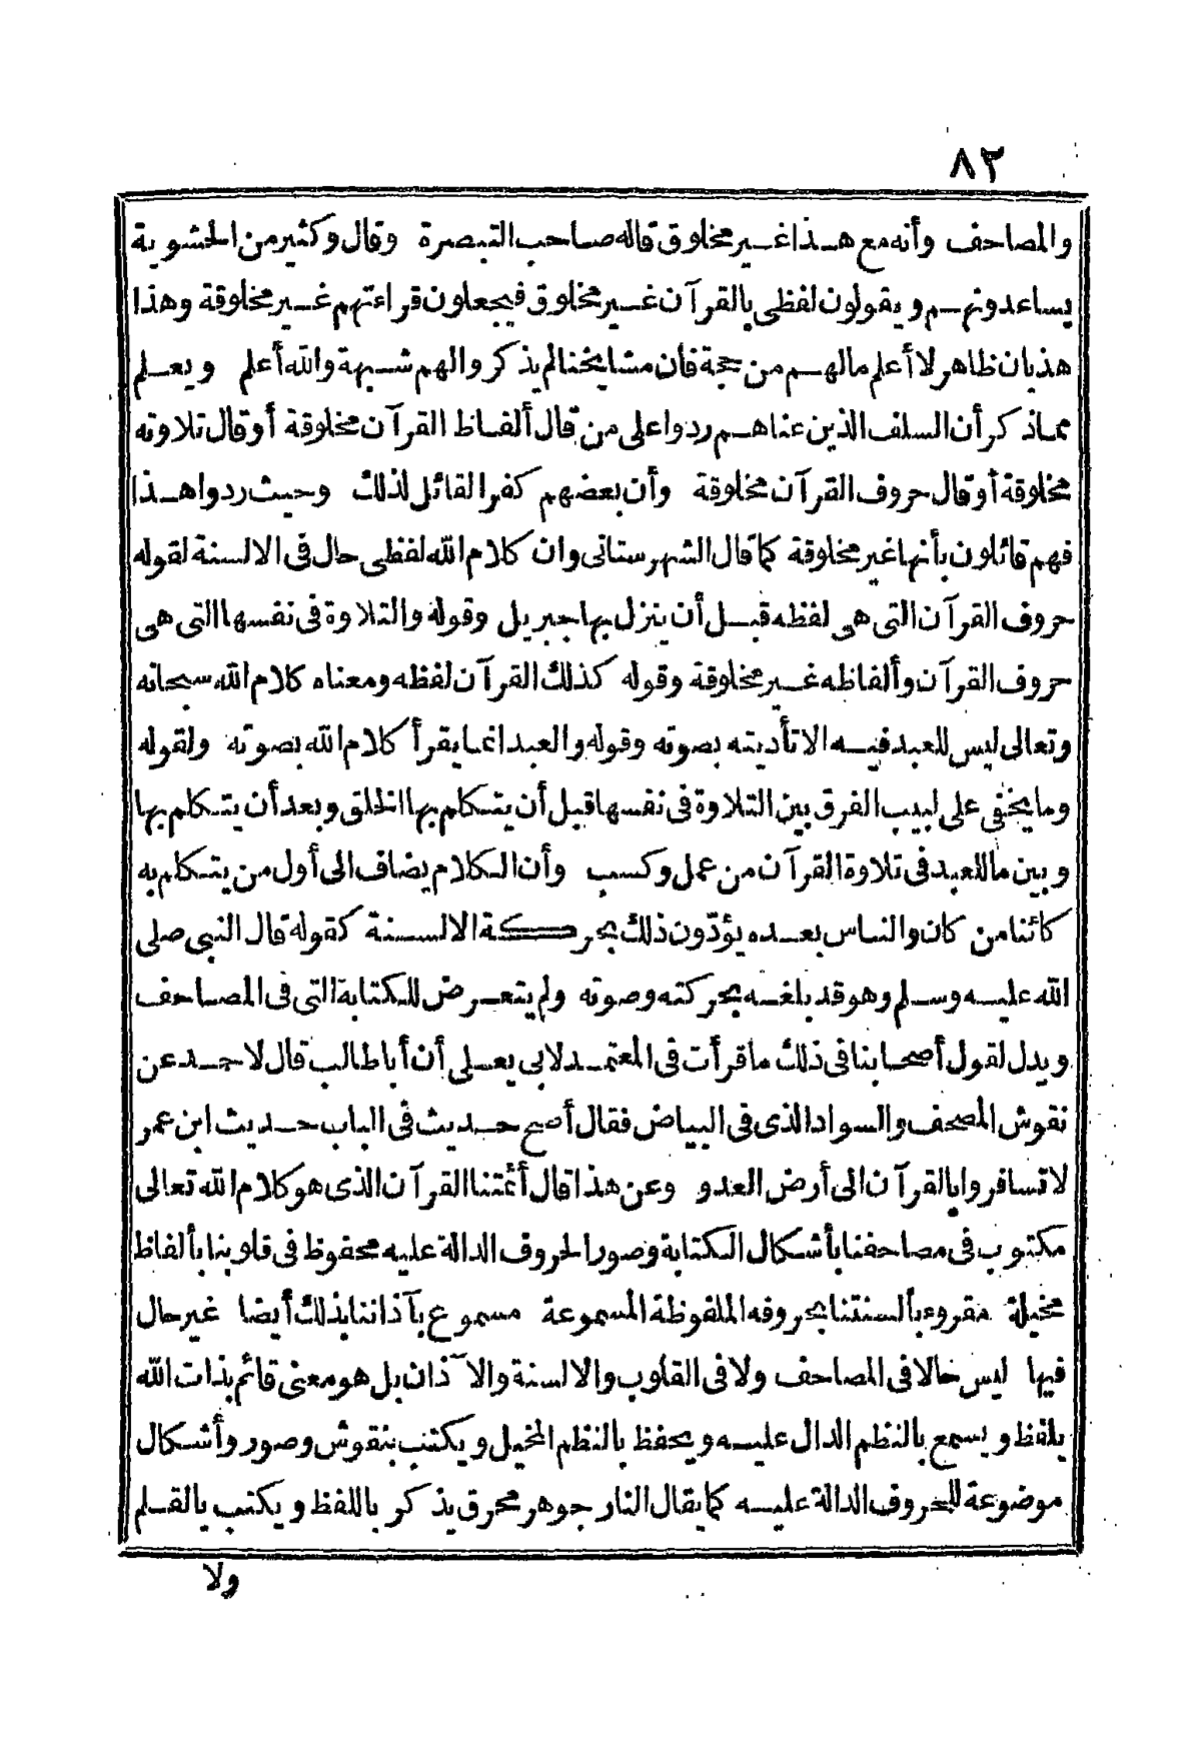 ٨٢
والمصاحف وأنه مع هذا غير مخلوق قاله صاحب التبصرة وقال وكثير من الحشوية
يساعدونهم ويقولون لفظى بالقرآن غير مخلوق فيجعلون قراءتهم غير مخلوقة وهذا
هذيان ظاهر لا أعلم مالهم من حجة فان مشايخنا لم يذكروا لهم شبهة والله أعلم ويعلم
مماذكر أن السلف الذين عناهم ردوا على من قال ألفاظ القرآن مخلوقة أو قال تلاوته
مخلوقة أو قال حروف القرآن مخلوقة وأن بعضهم كفر القائل لذلك وحيث ردوا هذا
فهم قائلون بأنها غير مخلوقة كما قال الشهرستانى وان كلام الله لفظى حال فى الالسنة لقوله
حروف القرآن التى هى لفظه قبل أن ينزل بها جبريل وقوله والتلاوة فى نفسها التى هى
حروف القرآن وألفاظه غير مخلوقة وقوله كذلك القرآن لفظه ومعناه كلام الله سبحانه
وتعالى ليس للعبد فيه الا تأديته بصوته وقوله والعبد انما يقرأ كلام الله بصوته ولقوله
وما يخفى على لبيب الفرق بين التلاوة فى نفسها قبل أن يتكلم بها الخلق وبعد أن يتكلم بها
وبين ما للعبد فى تلاوة القرآن من عمل وكسب وأن الكلام يضاف الى أول من يتكلم به
كائنا من كان والناس بعده يؤدّون ذلك بحركة الالسنة كقوله قال النبى صلى
الله عليه وسلم وهو قد بلغه بحركته وصوته ولم يتعرض للكتابة التى فى المصاحف
ويدل لقول أصحابنا فى ذلك ما قرأت فى المعتمد لابى يعلى أن أبا طالب قال لاحمد عن
نقوش المصحف والسواد الذى فى البياض فقال أصح حديث فى الباب حديث ابن عمر
لا تسافروا بالقرآن الى أرض العدو وعن هذا قال أئمتنا القرآن الذى هو كلام الله تعالى
مكتوب فى مصاحفنا بأشكال الكتابة وصور الحروف الدالة عليه محفوظ فى قلوبنا بألفاظ
مخيلة مقروء بألسنتنا بحروفه الملفوظة المسموعة مسموع بآذاننا بذلك أيضا غير حال
فيها ليس حالا فى المصاحف ولا فى القلوب والالسنة والآذان بل هو معنى قائم بذات الله
يلفظ ويسمع بالنظم الدال عليه ويحفظ بالنظم المخيل ويكتب بنقوش وصور وأشكال
موضوعة للحروف الدالة عليه كما يقال النار جوهر محرق يذكر باللفظ ويكتب بالقلم
ولا